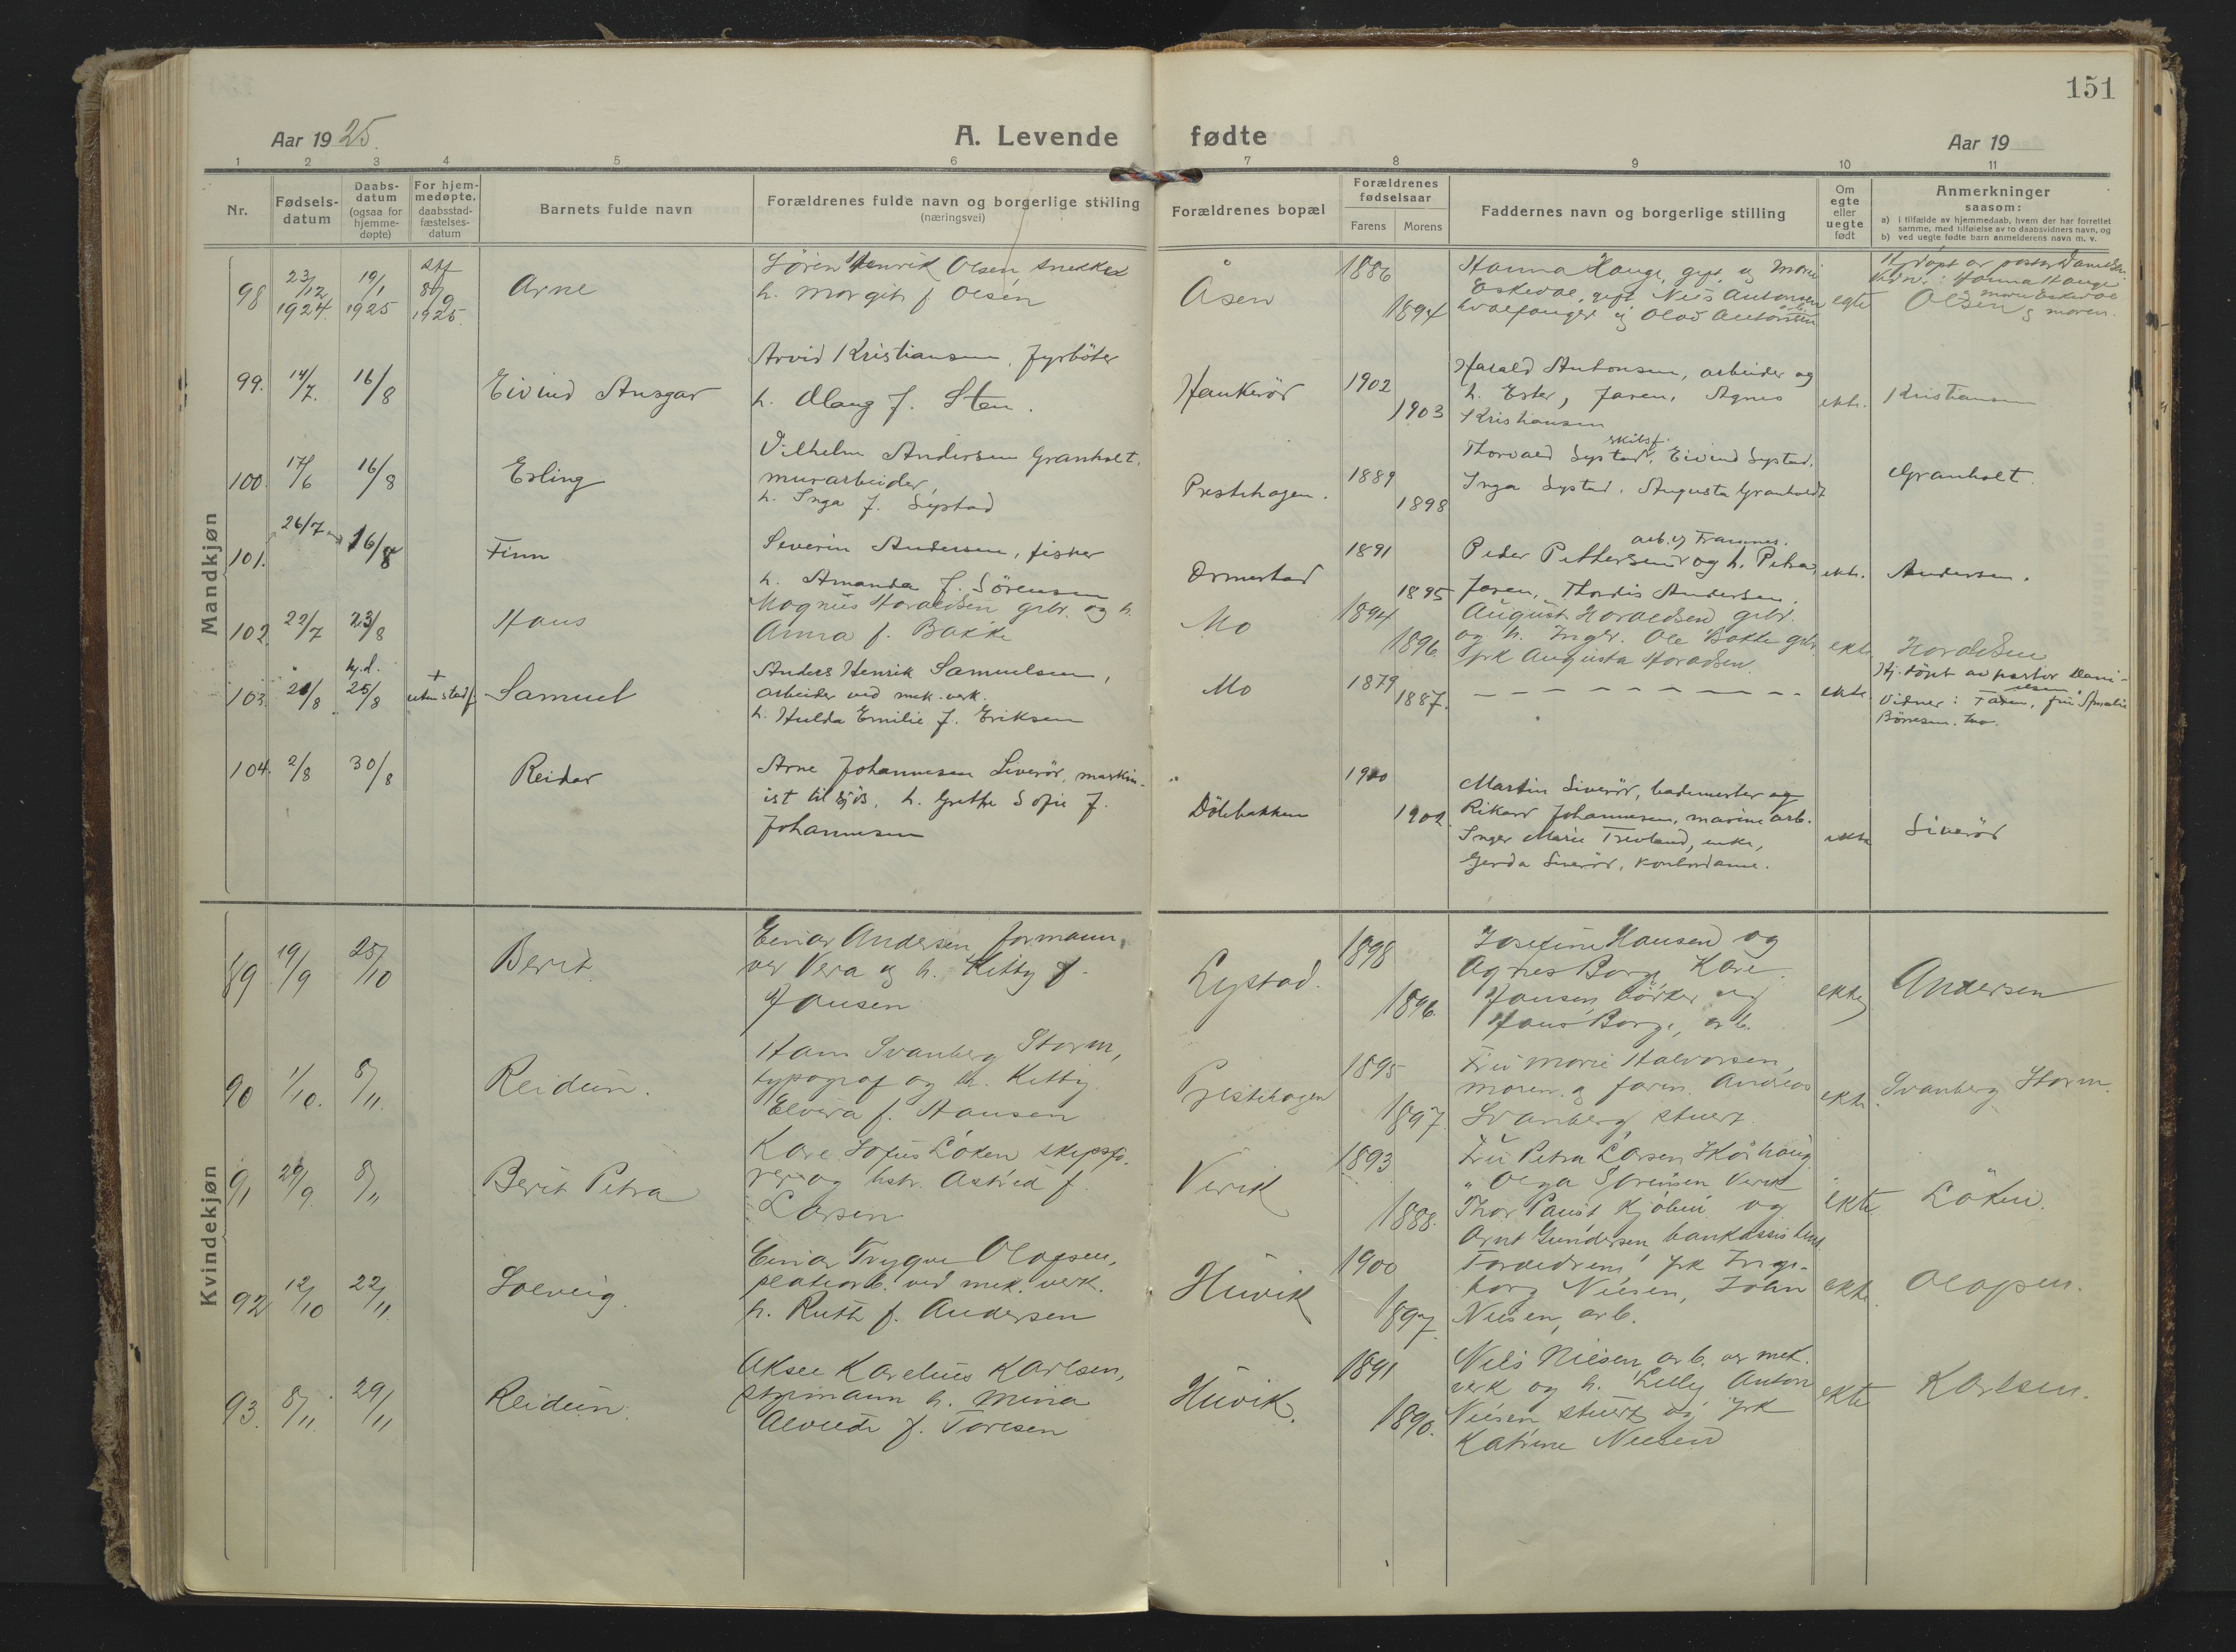 151
Aar 1925.
A. Levende fødte
Aar 19
1 2 3 4 5 6 7 8 9 10 11
Nr.
Fødsels-
datum
Daabs-
datum
(ogsaa for
hjemme-
døpte)
For hjem-
medøpte.
daabsstad-
fæstelses-
datum
Barnets fulde navn
Forældrenes fulde navn og borgerlige stilling
(næringsvei)
Forældrenes bopæl
Forældrenes
fødselsaar
Farens Morens
Faddernes navn og borgerlige stilling
Om
egte
eller
uegte
født
Anmerkninger
saasom:
a) i tilfælde av hjemmedaab, hvem der har forrettet
samme, med tilføielse av to daabsvidners navn, og
b) ved uegte fødte barn anmelderens navn m. v.
Mandkjøn
98 23/12 1924. 19/1 1925 1925. Arne
Søren Henrik Olsen snekker
h. Margit f. Olsen
Åsen
1886
1894
Hanna Hauge, gift, og Marie
Eskedal, gift. Nils Antonsen
hvalfanger og Olav Antonsen
egte
Hj.døpt av pastor Daniels.
Vidn.: Hanna Hauge
Marie Eskedal
Olsen & moren.
99. 14/7. 16/8 Eivind Ansgar
Arvid Kristiansen, fyrbøter
h. Olaug f. Sten.
Haukerör
1902
1903
Harald Antonsen, arbeider og
h. Ester, faren, Agnes
Kristiansen
ekte.
Kristiansen
100. 17/6 16/8 Erling
Vilhelm Andersen Granholt,
murarbeider,
h. Inga f. Lystad
Prestehagen.
1889
1898
skibsf.
Thorvald Lystad, Eivind Lystad,
Inga Lystad, Augusta Granholdt
Granholt.
101. 26/7 16/8 Finn
Severin Andersen, fisker
h. Amanda f. Sörensen
Ormestad
1891
1895
arb. v/ Framnes.
Peder Pettersen og h. Petra,
faren, Thordis Andersen.
ekte.
Andersen.
102. 22/7 23/8 Hans
Magnus Haraldsen grbr. og h.
Anna f. Bakke
Mo
1894
1896.
August Haraldsen grbr.
og h. Inger. Ole Bakke grbr.
frk Augusta Haraldsen
ekte
Haraldsen
103. 21/8 hj.d. 25/8 + uten stadf. Samuel
Anders Henrik Samuelsen,
arbeider ved mek. verk.
h. Hulda Emilie f. Eriksen
Mo
1879
1887.
ekte
Hj. döpt av pastor Dani-
elsen.
Vidner: Faren, fru Amalie
Börresen, Mo.
104. 2/8 30/8 Reidar
Arne Johannesen Liverör, maskin-
ist til sjös, h. Grethe Sofie f.
Johannesen
Dölebakken
1900
1902.
Martin Liverör, bademester og
Rikard Johannesen, marine arb.
Inger Marie Trevland, enke,
Gerda Liverör, kontordame.
ekte
Liverör
Kvindekjøn
89 19/9 25/10 Berit
Einar Andersen formann,
ver Vera og h. Kitty f.
Jansen
Lystad.
1898
1896.
Josefine Hansen og
Agnes Borge, Kåre
Jansen, bödker og
Hans Borge, arb.
ekte
Andersen
90 1/10. 8/11. Reidun.
Hans Svanberg Storm,
typograf og h. Kitty
Elvira f. Hansen
Prestehagen
1895
1897.
Fru Marie Halvorsen,
moren og faren. Andreas
Svanberg, stuert.
ekte.
Svanberg Storm.
91 29/9. 8/11 Berit Petra
Kåre Sofus Löken skipsfö-
rer og hstr. Astrid f.
Larsen
Virik
1893
1888.
Fru Petra Larsen,
" Olga Sørensen Virik
Thor Paust Kjölen og
Arnt Gundersen, bankassistent.
ekte.
Löken.
92 12/10 22/11. Solveig.
Einar Trygve Olafsen,
platearb. ved mek. verk.
h. Ruth f. Andersen
Huvik
1900
1897.
Foreldrene, frk Inge-
borg Nilsen, John
Nilsen, arb.
ekte.
Olafsen.
93. 8/11. 29/11 Reidun.
Aksel Karelius Karlsen,
styrmann h. Mina
Alvilde f. Toresen
Huvik.
1891
1890.
Nils Nilsen, arb. ver mek.
verk og h. Lilly, Anton
Nilsen stuert og frk
Katrine Nilsen
ekte
Karlsen.